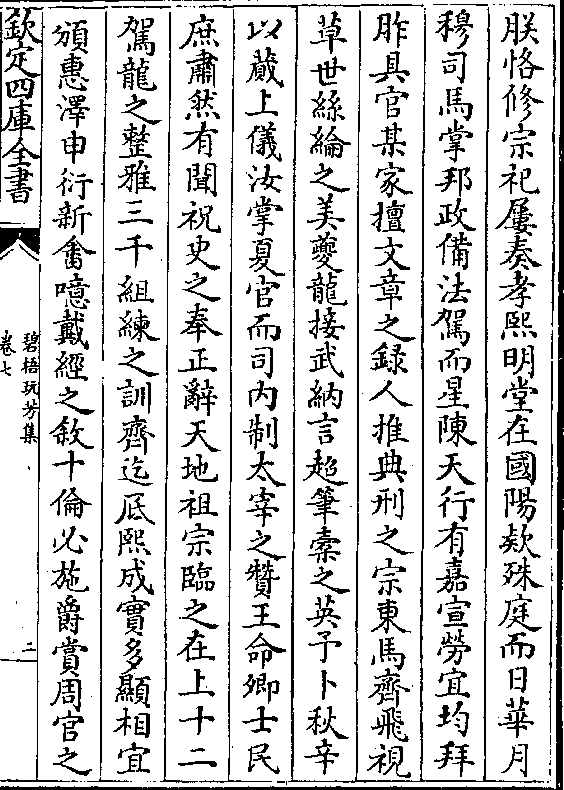 朕恪修宗祀屢奏孝熙明堂在國陽欻殊庭而日華月
穆司馬掌邦政備法駕而星陳天行有嘉宣勞宜均拜
胙具官某家擅文章之録人推典刑之宗東馬齊飛視
草世絲綸之美夔龍接武納言超筆槖之英予卜秋辛
以蕆上儀汝掌夏官而司内制太宰之贊王命卿士民
庶肅然有聞祝史之奉正辭天地祖宗臨之在上十二
駕龍之整雅三千組練之訓齊迄底熙成實多顯相宜
頒惠澤申衍新畬噫戴經之敘十倫必施爵賞周官之
欽定四庫全書
碧梧玩芳集
卷七
二